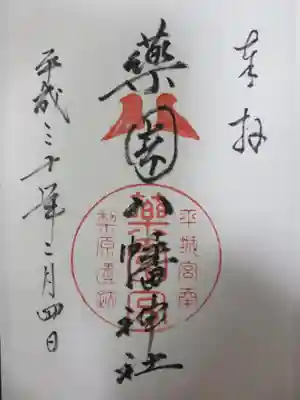 奉拝
藥園八幡神社
平成三十年二月四日
平城宮南
梨原遺跡